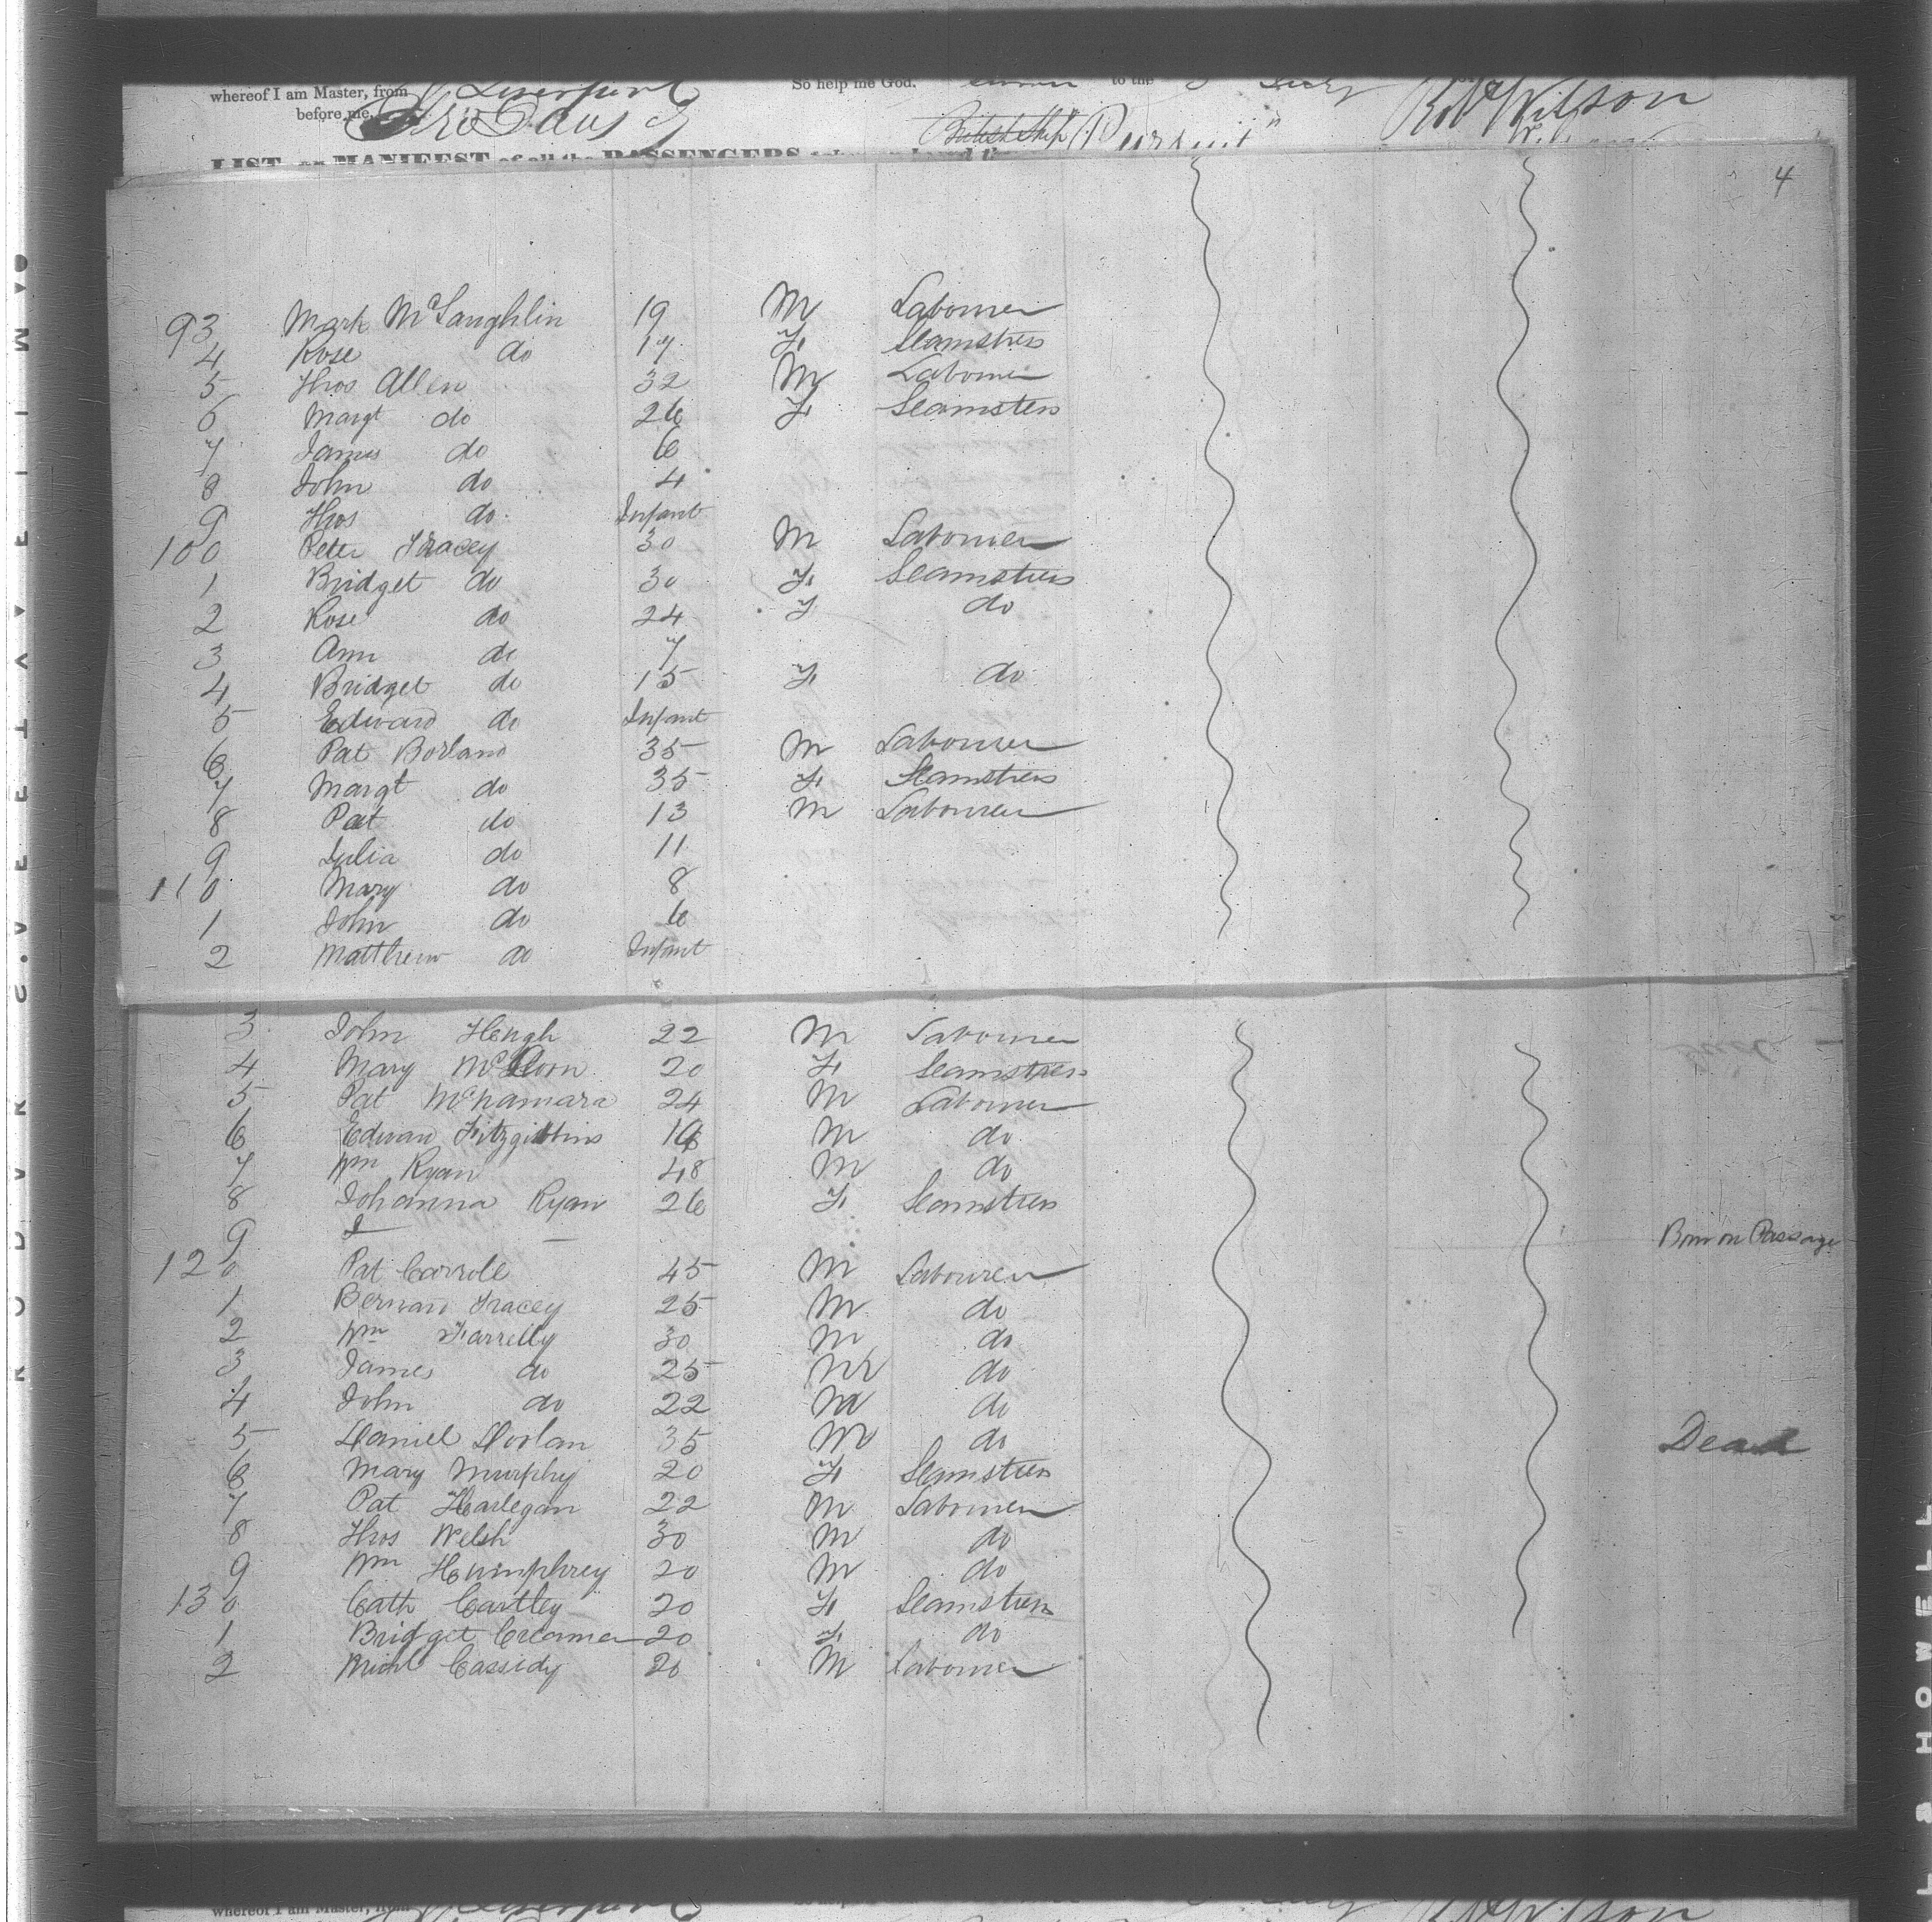 whereof I am Master, from Liverpool So help me God. to the
before me, British Ship "Pursuit" Robt Wilson
LIST or MANIFEST of all the PASSENGERS
4
93 Mark McLaughlin 19 M Labourer
4 Rose do 17 F. Seamstress
5 Thos Allen 32 M Labourer
6 Margt do 26 F. Seamstress
7 James do 6
8 John do 4
9 Thos do Infant
100 Peter Tracey 30 M Labourer
1 Bridget do 30 F. Seamstress
2 Rose do 24 F do
3 Ann do 7
4 Bridget do 15 F. do
5 Edward do Infant
6 Pat Borland 35 M Labourer
7 Margt do 35 F. Seamstress
8 Pat do 13 M Labourer
9 Julia do 11
110 Mary do 8
1 John do 6
2 Matthew do Infant
3 John Hough 22 M Labourer
4 Mary 20 F. Seamstress
5 Pat McNamara 24 M Labourer
6 Edward Fitzgibbins M do
7 Wm Ryan 48 M do
8 Johanna Ryan 26 F. Seamstress
9 Born on Passage
120 Pat Carrole 45 M Labourer
1 Bernard Tracey 25 M do
2 Wm Farrelly 30 M do
3 James do 25 M do
4 John do 22 M do
5 Daniel Doolan 35 M do Dead
6 Mary Murphy 20 F. Seamstress
7 Pat Harlegan 22 M Labourer
8 Thos Welsh 30 M do
9 Wm Humphrey 20 M do
130 Cath Cartley 20 F. Seamstress
1 Bridget Creamer 20 F. do
2 Michl Cassidy 20 M Labourer
whereof I am Master, from Liverpool